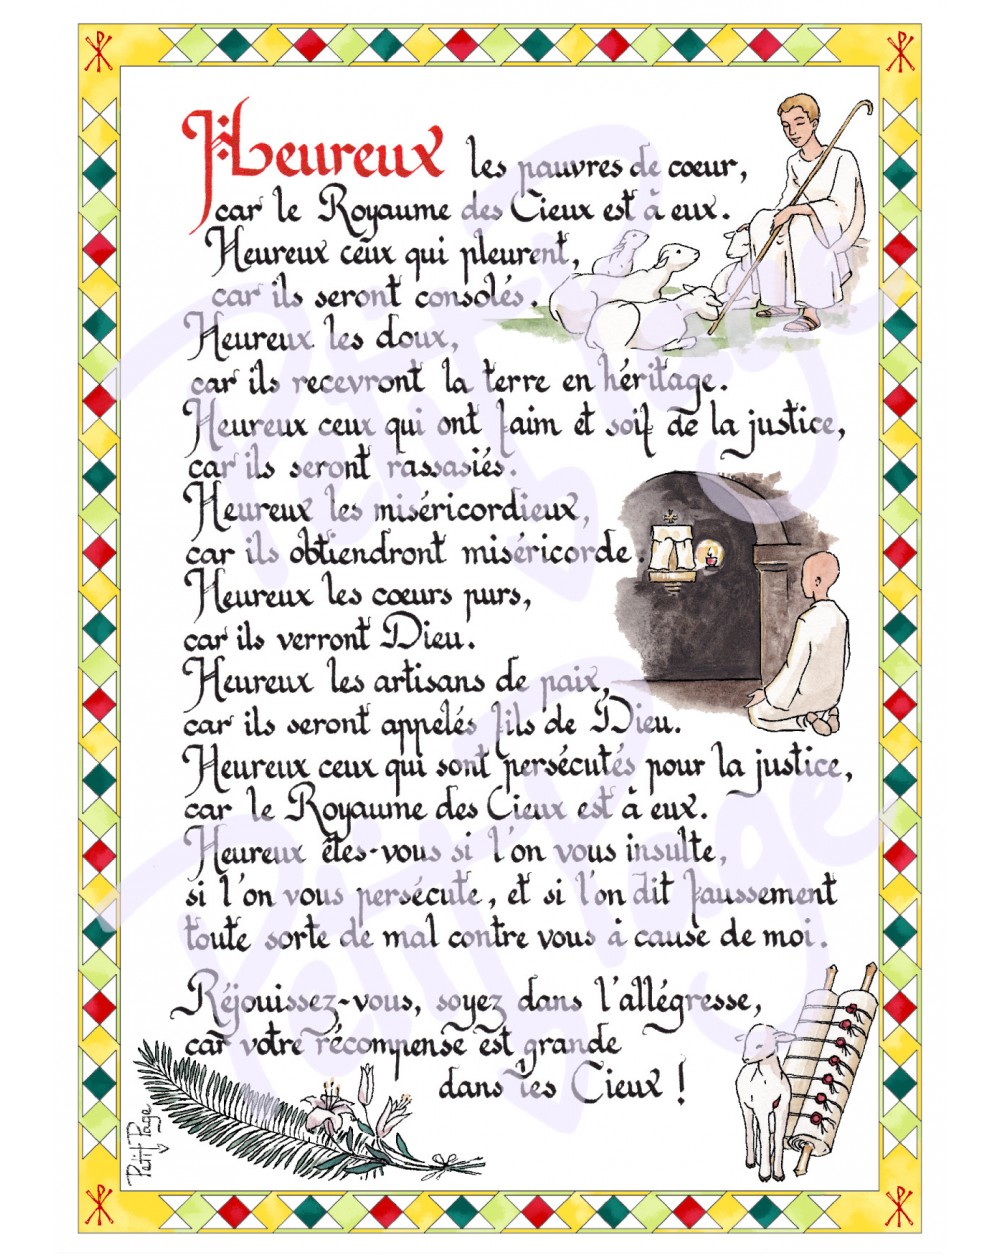 Heureux les pauvres de coeur,
car le Royaume des Cieux est à eux.
Heureux ceux qui pleurent,
car ils seront consolés.
Heureux les doux,
car ils recevront la terre en héritage.
Heureux ceux qui ont faim et soif de la justice,
car ils seront rassasiés.
Heureux les miséricordieux,
car ils obtiendront miséricorde.
Heureux les coeurs purs,
car ils verront Dieu.
Heureux les artisans de paix,
car ils seront appelés fils de Dieu.
Heureux ceux qui sont persécutés pour la justice,
car le Royaume des Cieux est à eux.
Heureux êtes-vous si l'on vous insulte,
si l'on vous persécute, et si l'on dit faussement
toute sorte de mal contre vous à cause de moi.
Réjouissez-vous, soyez dans l'allégresse,
car votre récompense est grande
dans les Cieux !
Petit Page
Petit Page
Petit Page